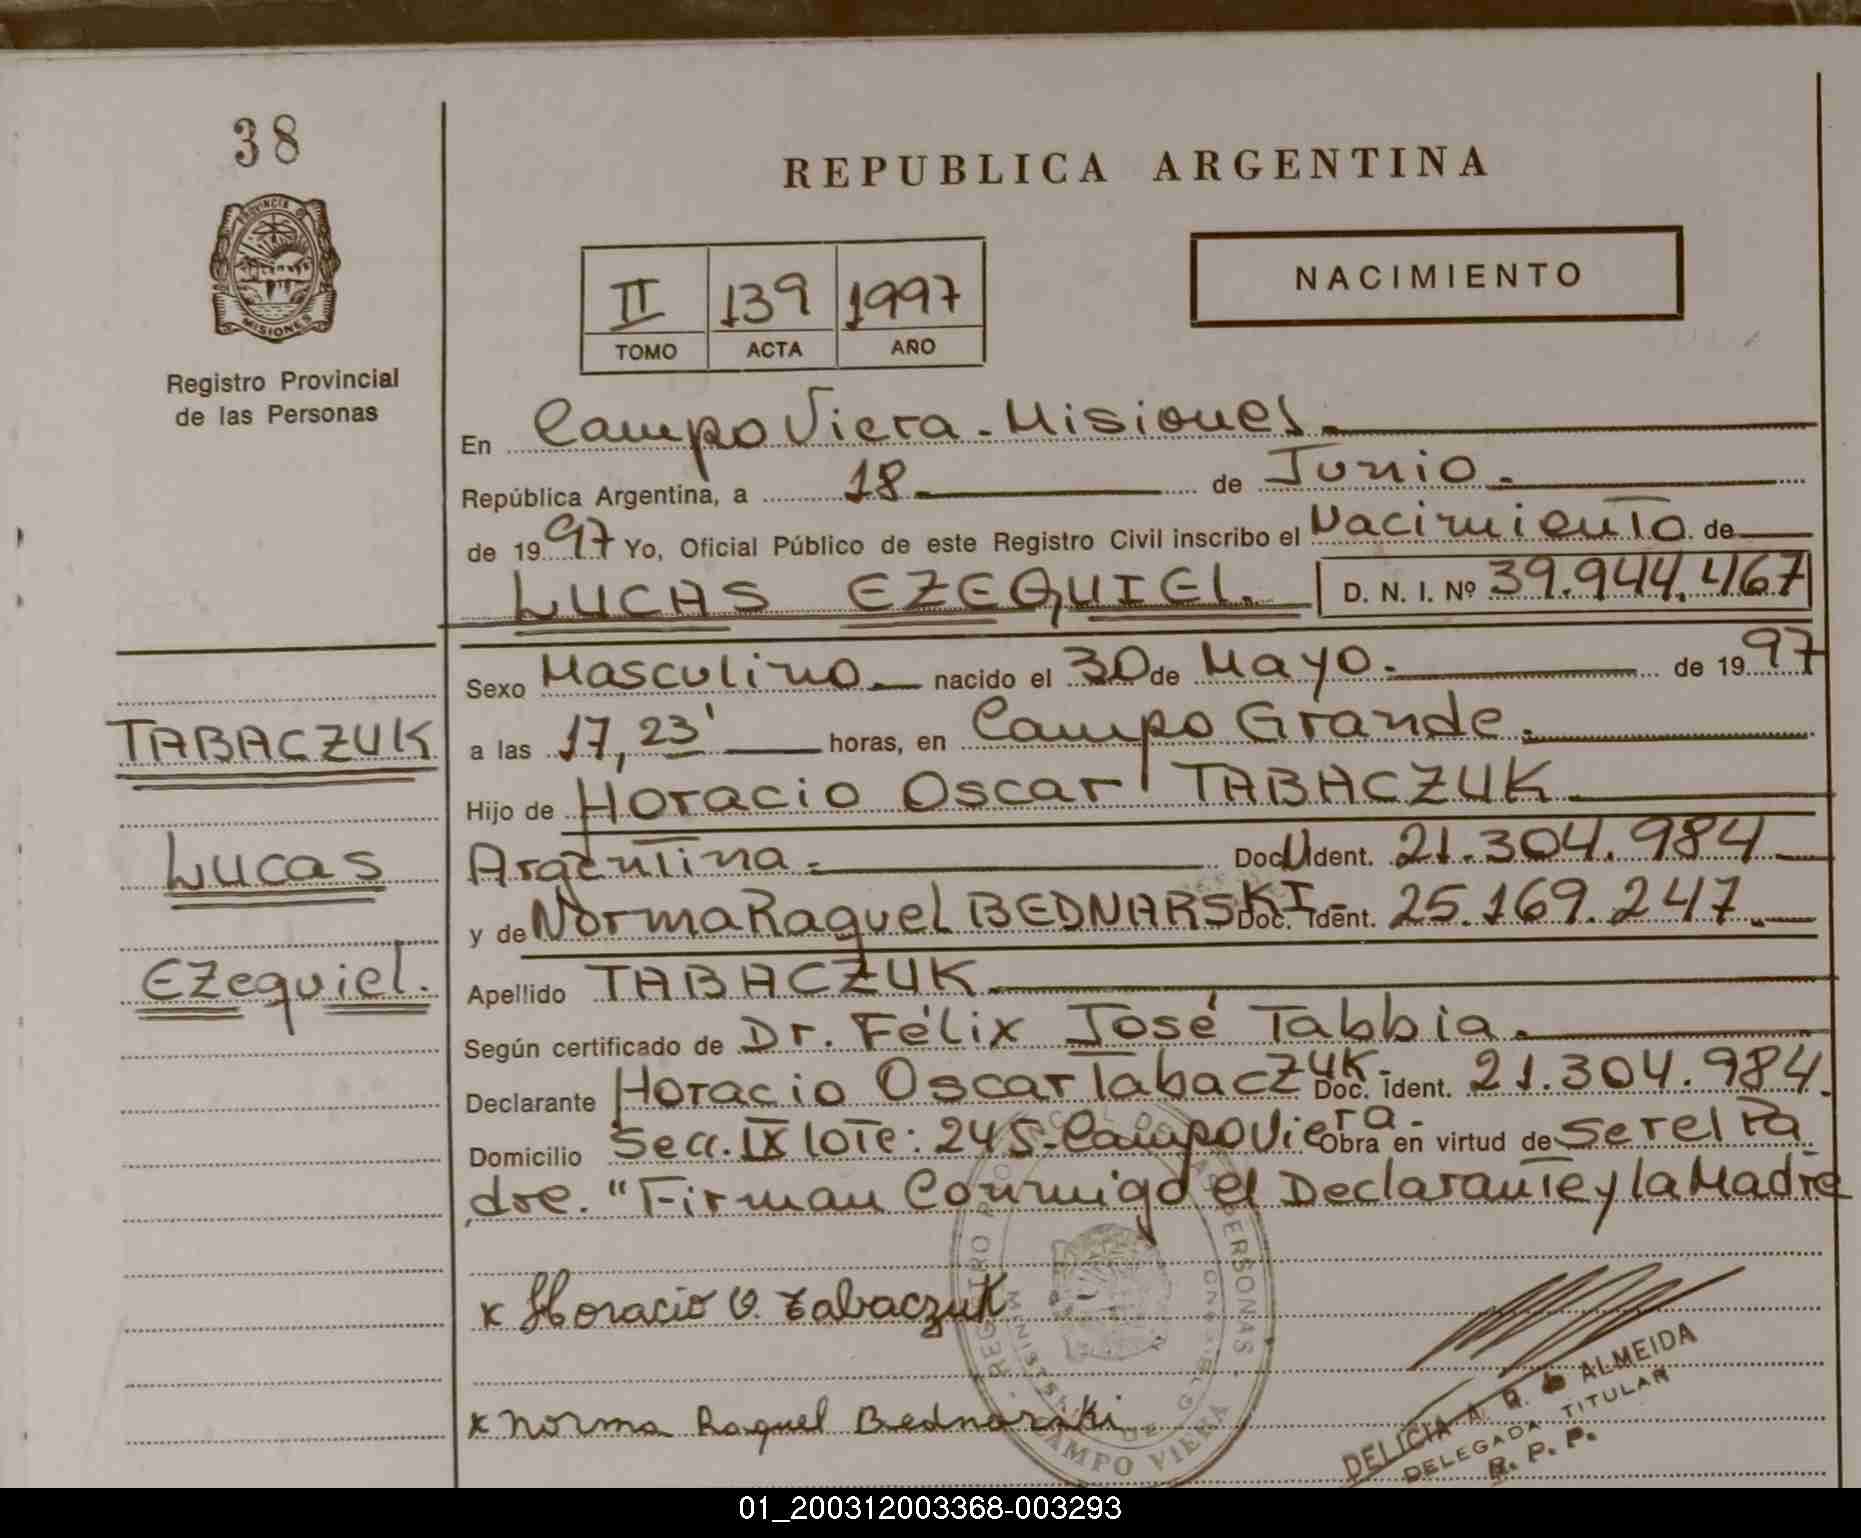 38
PROVINCIA DE
MISIONES
Registro Provincial
de las Personas
TABACZUK
Lucas
EZequiel.
REPUBLICA ARGENTINA
II 139 1997
TOMO ACTA AÑO
NACIMIENTO
En Campo Viera - Misiones.
República Argentina, a 18 de Junio.
de 1997 Yo, Oficial Público de este Registro Civil inscribo el Nacimiento de
LUCAS EZEQUIEL. D. N. I. Nº 39.944.467
Sexo Masculino nacido el 30 de Mayo. de 1997
a las 17,23' horas, en Campo Grande.
Hijo de Horacio Oscar TABACZUK
Argentina. Doc. Ident. 21.304.984
y de Norma Raquel BEDNARSKI- Doc. Ident. 25.169.247.
Apellido TABACZUK
Según certificado de Dr. Félix José Tabbia.
Declarante Horacio Oscar Tabaczuk- Doc. Ident. 21.304.984.
Domicilio Secc. IX lote: 245-Campo Viera- Obra en virtud de ser el Pa
dre. "Firman Conmigo el Declarante y la Madre
x Horacio O. Tabaczuk
x Norma Raquel Bednarski
CAMPO VIERA
DELICIA A. R. de ALMEIDA
DELEGADA TITULAR
R. P. P.
01_200312003368-003293